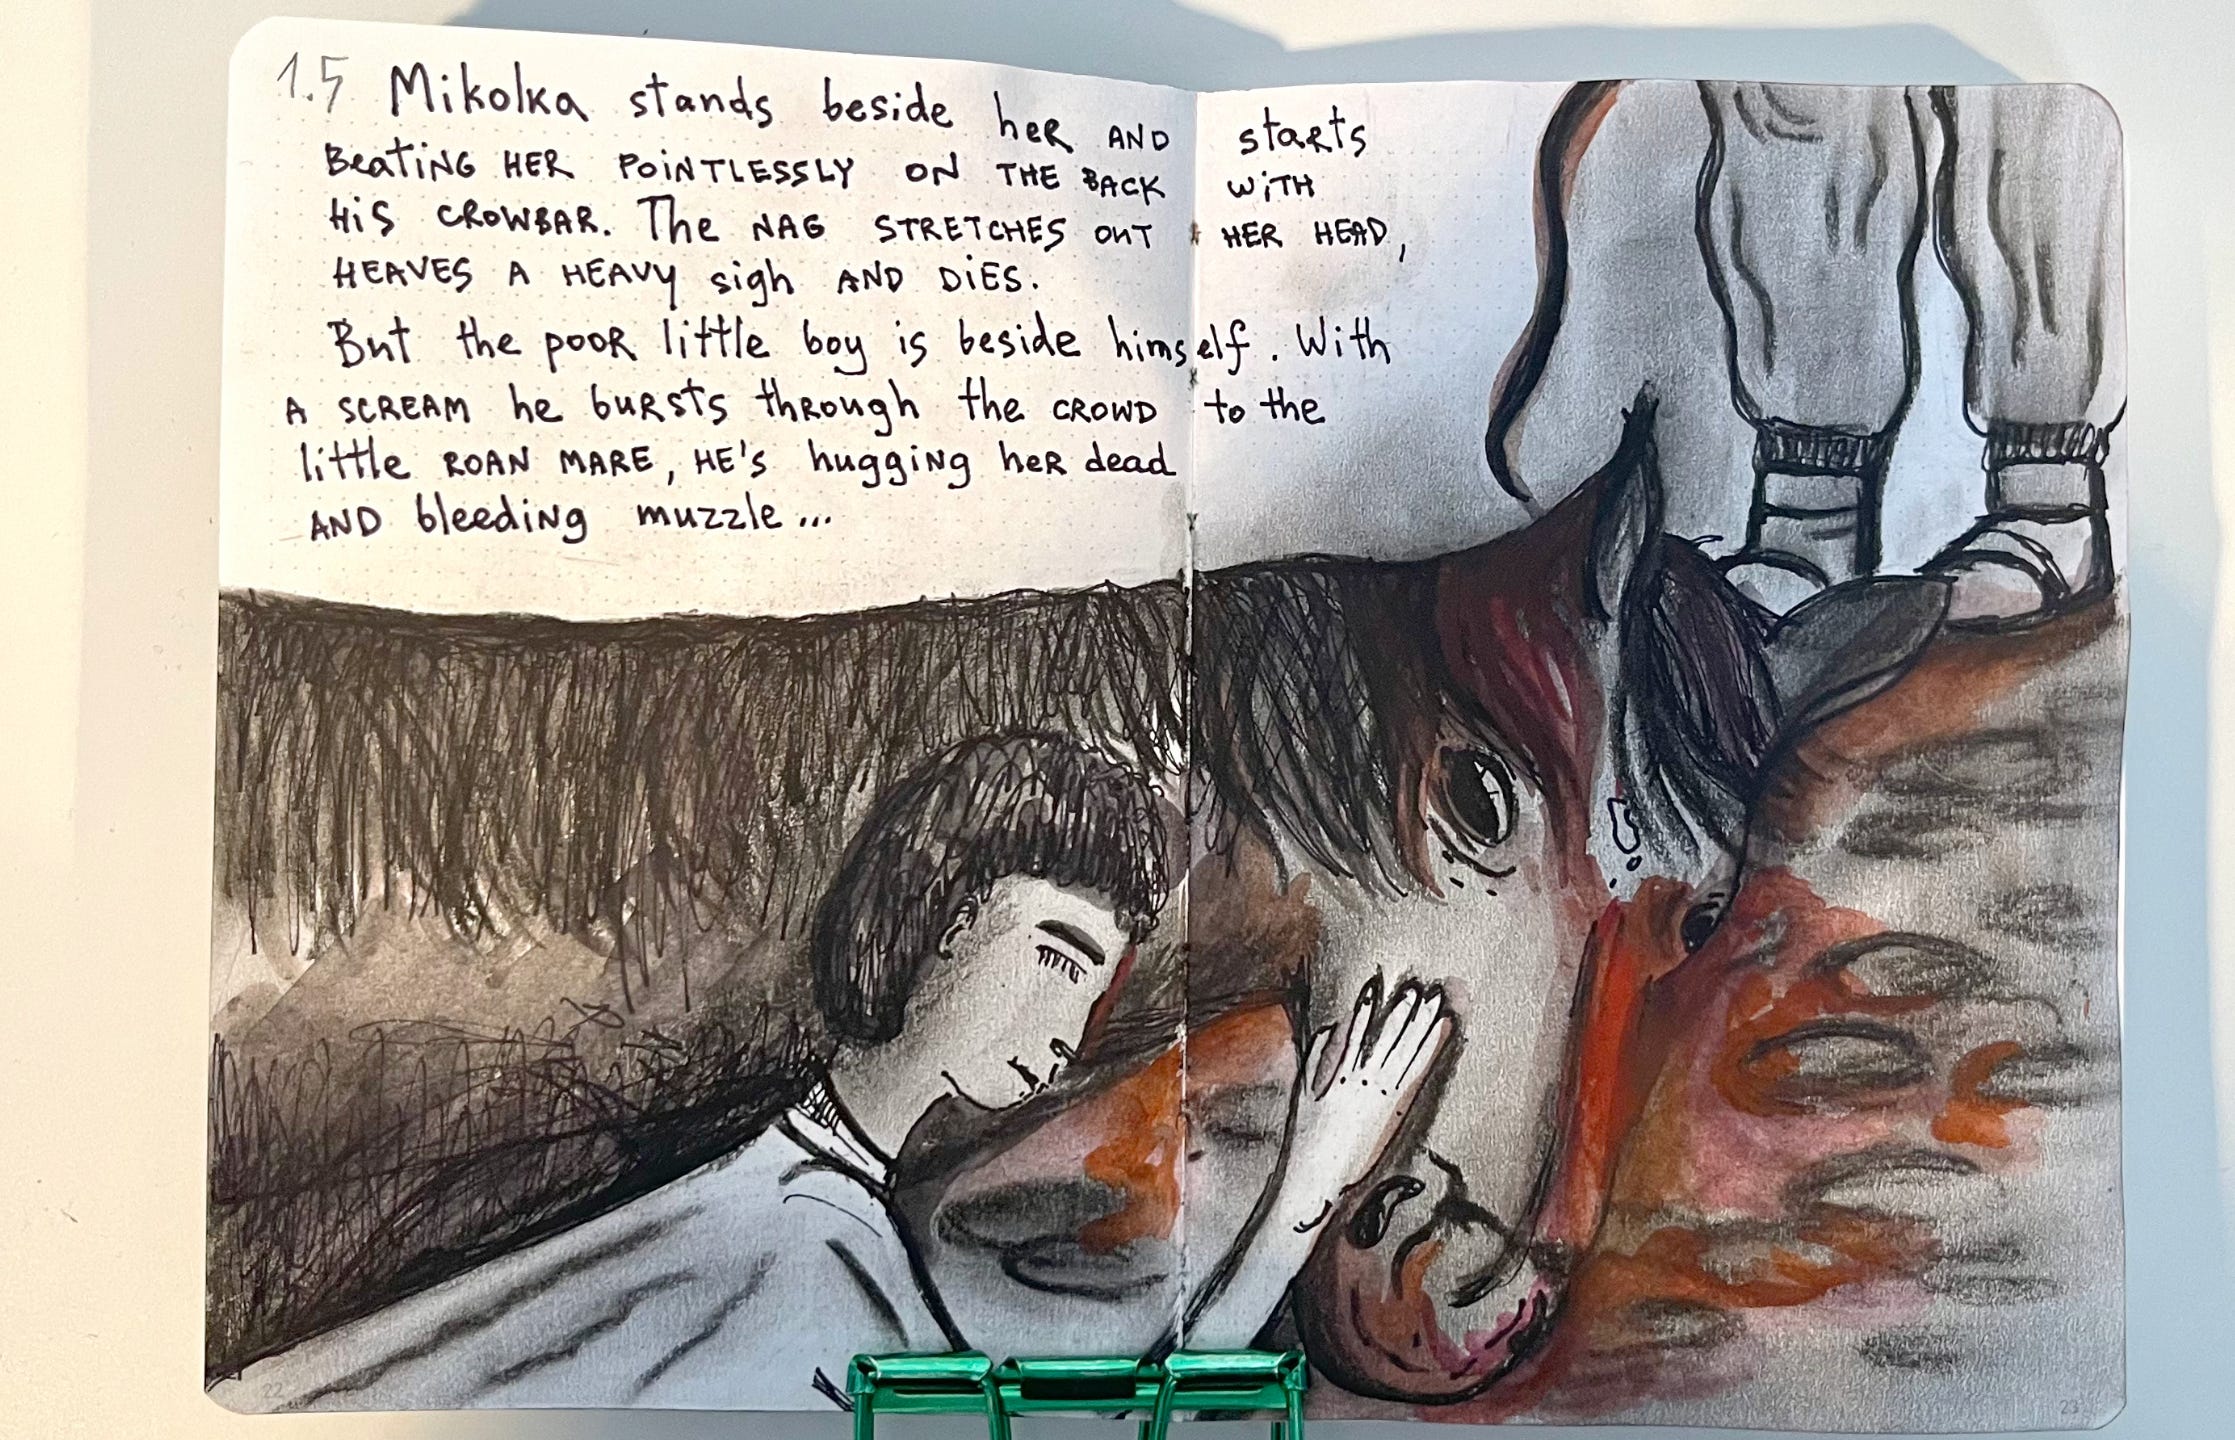 1.5 Mikolka stands beside her AND starts
Beating HER POINTLESSLY ON THE BACK WITH
His CROWBAR. The NAG STRETCHES OUT HER HEAD,
HEAVES A HEAVY sigh AND DIES.
But the pooR little boy is beside himself. With
A SCREAM he bursts through the CROWD to the
little ROAN MARE, HE's hugging heR dead
AND bleeding muzzle...
22
23